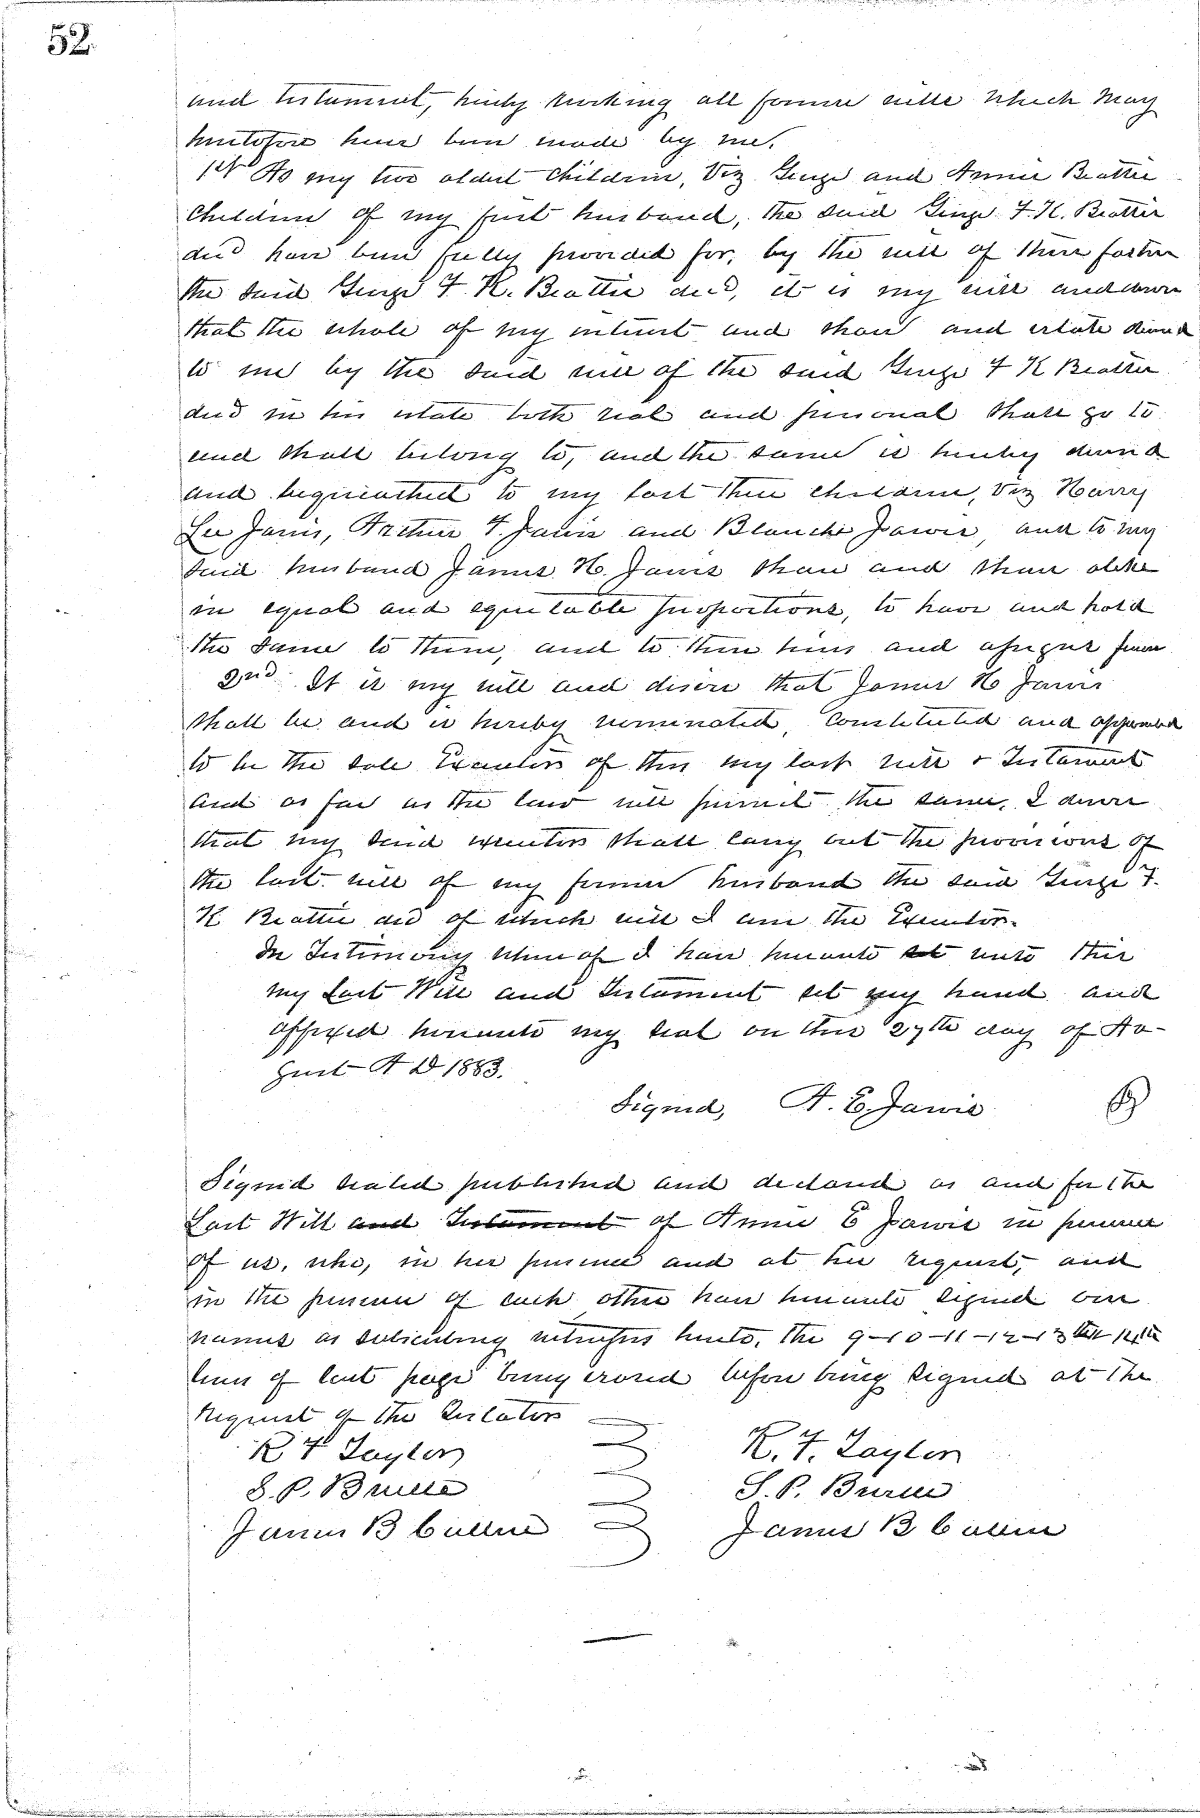 52.
and testament, hereby revoking all former wills which may
heretofore have been made by me.
1st As my two oldest children, Viz George and Annie Beattie
children of my first husband, the said George F. K. Beattie
decd have been fully provided for, by the will of their father
the said George F. K. Beattie decd, it is my will and desire
that the whole of my interest and share and estate devised
to me by the said will of the said George F K Beattie
decd in his estate both real and personal shall go to
and shall belong to, and the same is hereby devised
and bequeathed to my last three children, Viz Harry
Lee Jarvis, Arthur F. Jarvis and Blanche Jarvis, and to my
said husband James H. Jarvis share and share alike
in equal and equitable proportions, to have and hold
the same to them, and to their heirs and assigns forever
2nd It is my will and desire that James H Jarvis
shall be and is hereby nominated, constituted and appointed
to be the sole Executor of this my last will & Testament
and as far as the law will permit the same, I desire
that my said executor shall carry out the provisions of
the last will of my former husband the said George F.
K Beattie decd of which will I am the Executor.
In Testimony whereof I have hereunto set unto this
my Last Will and Testament set my hand and
affixed hereunto my seal on this 27th day of Au-
gust A D 1883.
Signed, A. E. Jarvis
Signed sealed published and declared as and for the
Last Will and Testament of Annie E Jarvis in presence
of us, who, in her presence and at her request, and
in the presence of each other have hereunto signed our
names as subscribing witnesses hereto. The 9-10-11-12-13th 14th
lines of last page being erased before being signed at the
request of the Testator
R F Taylor R. F. Taylor
S. P. S. P.
James B Cullen James B Cullen